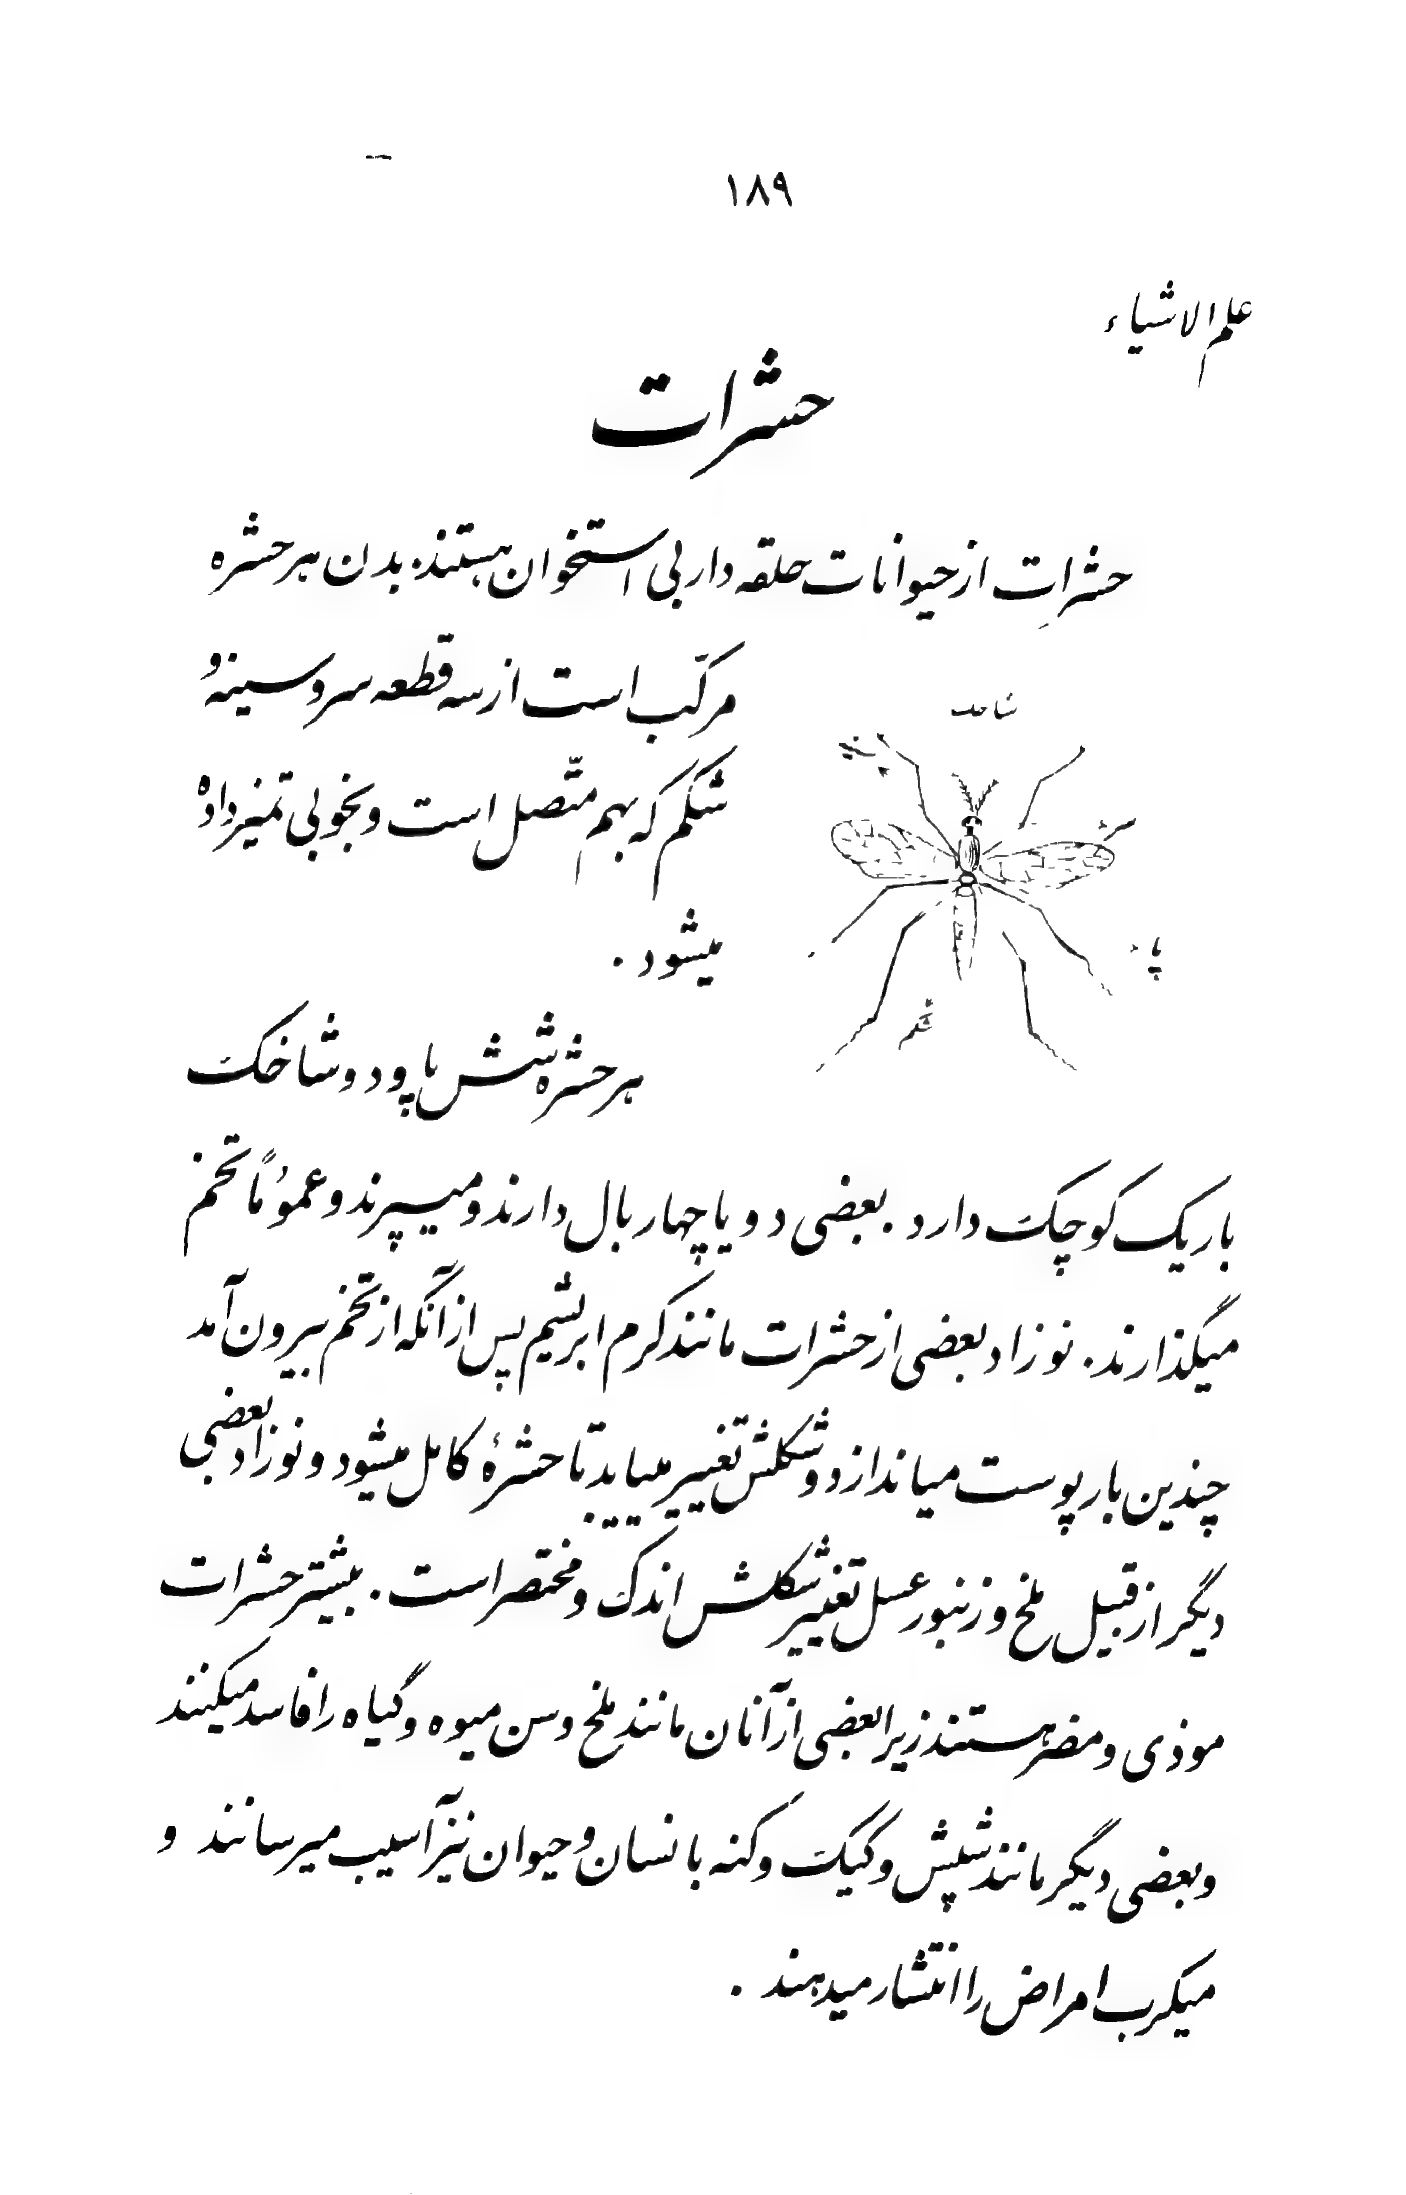 ۱۸۹
علم الاشیاء
حشرات
حشرات از حیوانات حلقه دار بی استخوان هستند. بدن هر حشره
مرکّب است از سه قطعه سر و سینه و
شاخک
شکم که بهم متّصل است و بخوبی تمیز داده
سر
میشود .
پا
شکم
هر حشره شش پا و دو شاخک
باریک کوچک دارد . بعضی دو یا چهار بال دارند و میپرند و عموُماً تخم
میگذارند . نوزاد بعضی از حشرات مانند کرم ابریشم پس از آنکه از تخم بیرون آمد
چندین بار پوست میاندازد و شکلش تغییر مییابد تا حشرهٔ کامل میشود و نوزاد بعضی
دیگر از قبیل ملخ و زنبور عسل تغییر شکلش اندک و مختصر است . بیشتر حشرات
موذی و مضرّ هستند زیرا بعضی از آنان مانند ملخ و سن میوه و گیاه را فاسد میکنند
و بعضی دیگر مانند شپش و کیک و کنه بانسان و حیوان نیز آسیب میرسانند و
میکرب امراض را انتشار میدهند .